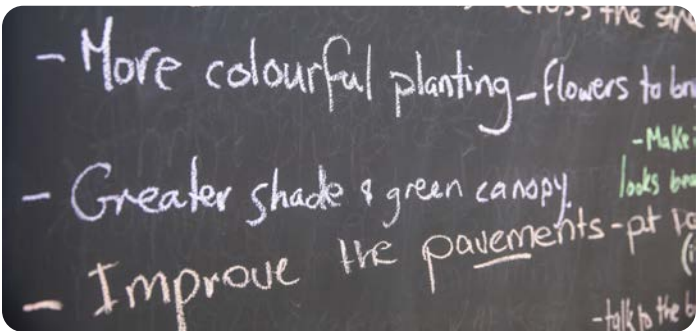 the
- More colourful planting - flowers to
- Make
looks
- Greater shade & green canopy.
- Improve the pavements - pt
- talk to the